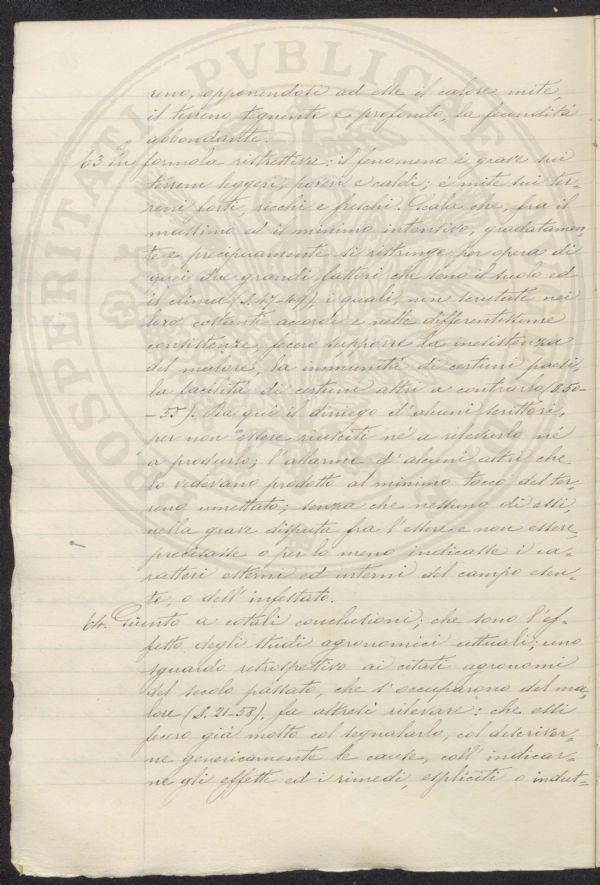 reno, opponendosi ad esse il calore mite,
il terreno tegnente e profondo, la fecondità
abbondante.
63. In formola ristrettiva: il fenomeno è grave sui
terreni leggeri, poveri e caldi; è mite sui ter-
reni forti, ricchi e freschi. Scala che, fra il
massimo ed il minimo intensivo, gradatamen-
te e precipuamente si restringe per opera di
quei due grandi fattori che sono il suolo ed
il clima (§. 47-49) i quali, non scrutati nei
loro costanti accordi e nelle differentissime
consistenze, fecero supporre la inesistenza
del malore, la immunità di certuni paesi,
la facilità di certuni altri a contrarlo (§. 50-
-55). Da qui il diniego d'alcuni scrittori,
per non essere riusciti nè a vederlo nè
a produrlo; l'allarme d'alcuni altri che
lo vedevano prodotto al minimo tocco del ter-
reno umettato; senza che nessuno di essi,
nella grave disputa fra l'essere e non essere,
precisasse o per lo meno indicasse i ca-
ratteri esterni ed interni del campo esen-
te, o dell'infestato.
64. Giunto a cotali conclusioni, che sono l'ef-
fetto degli studi agronomici attuali; uno
sguardo retrospettivo ai citati agronomi
del secolo passato, che s'occuparono del ma-
lore (§. 21-58), fa altresì rilevare: che essi
fecero già molto col segnalarlo, col descriver-
ne genericamente le cause, coll'indicar-
ne gli effetti ed i rimedi, espliciti o indut-
PROSPERITATI PVBLICAE